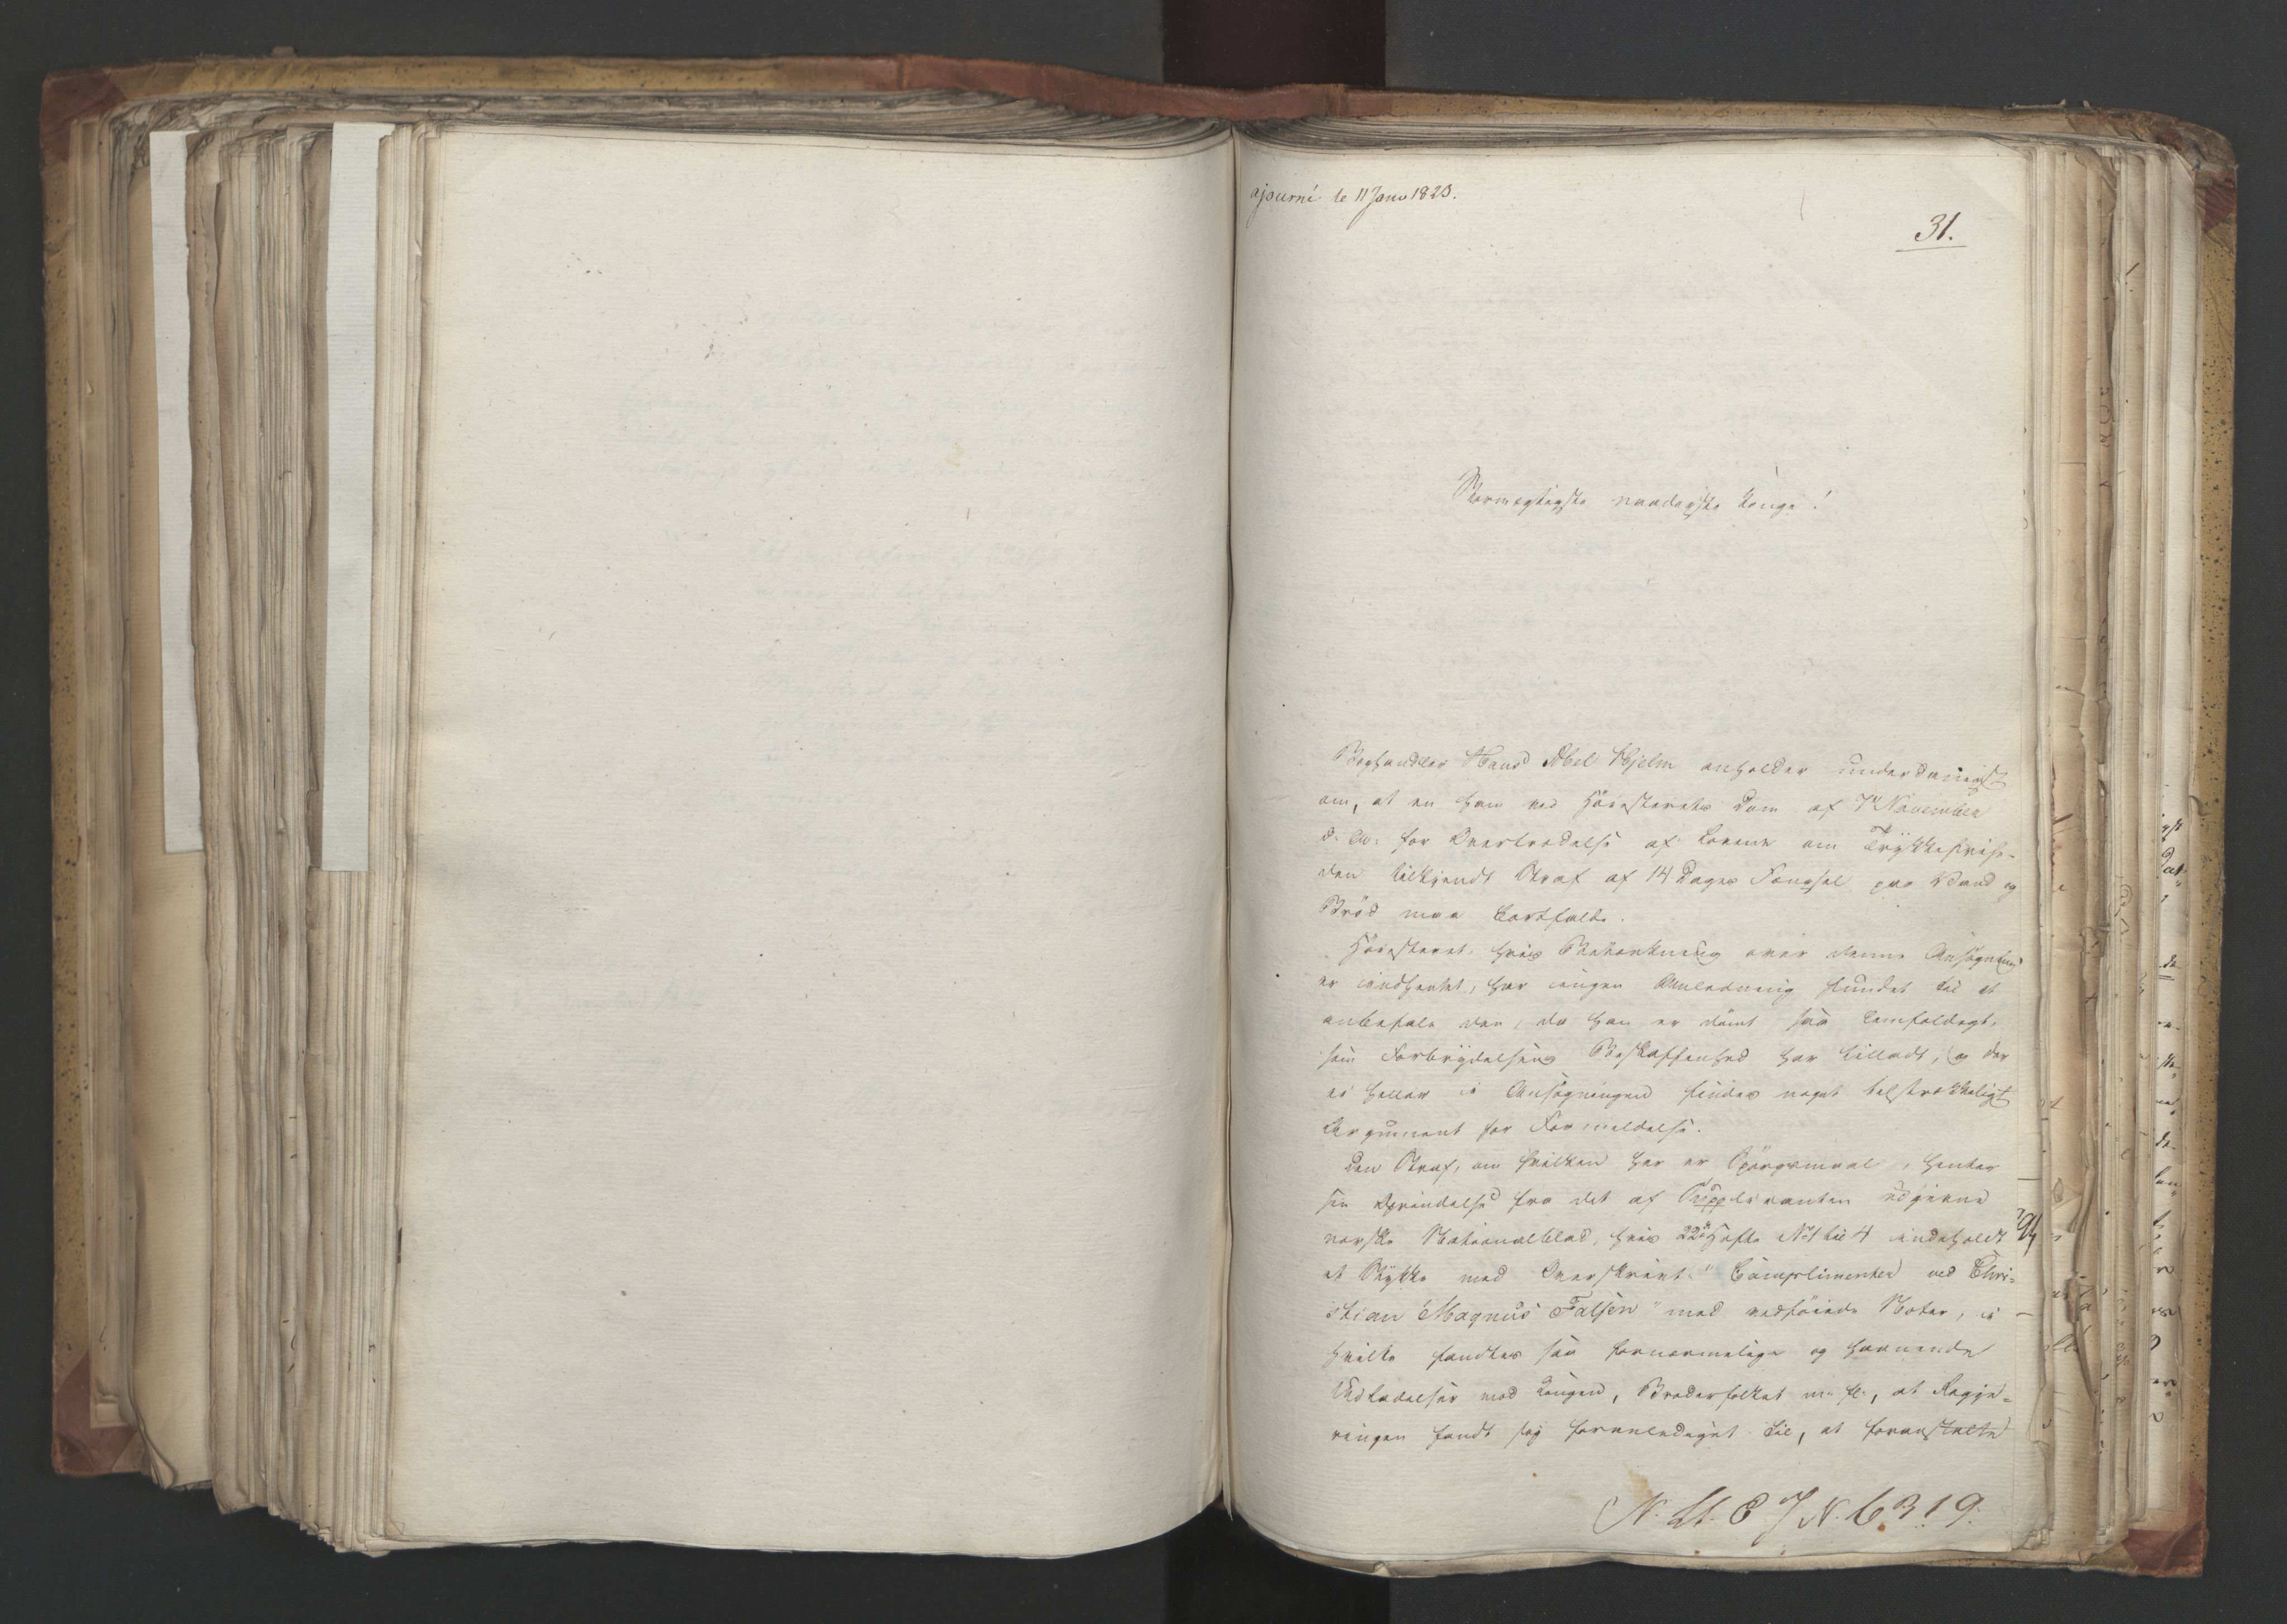 ajourné le 11 Janv 1823.
31.
Stormægtigste naadigste Konge!
Boghandler Hans Abel Hjelm anholder underdanigst
om, at en ham ved Höiesterets Dom af 7de November
d: A: for Overtrædelse af Lovene om Trykkefrihe-
den tilkjendt Straf af 14 Dages Fængsel paa Vand og
Bröd maa bortfalde.
Höiesteret, hvis Betænkning over denne Ansögning
er indhentet, har ingen Anledning fundet til at
anbefale den, da han er dömt saa lemfældigt,
som Forbrydelsens Beskaffenhed har tilladt, og der
ei heller i Ansögningen findes noget tilstrækkeligt
Argument for Formildelse.
Den Straf, om hvilken her er Spörgsmaal, henter
sin Oprindelse fra det af Supplicanten udgivne
norske Nationalblad, hvis 22de Hefte No 1 til 4 indeholdt
et Stykke med Overskrivt: "Complimenten ved Chri-
stian Magnus Falsen" med vedföiede Noter, i
hvilke fandtes saa fornærmelige og haanende
Udladelser mod Kongen, Broderfolket m: fl:, at Regje-
ringen fandt sig foranlediget til, at foranstalte
N. Lt. E J N. 6319.